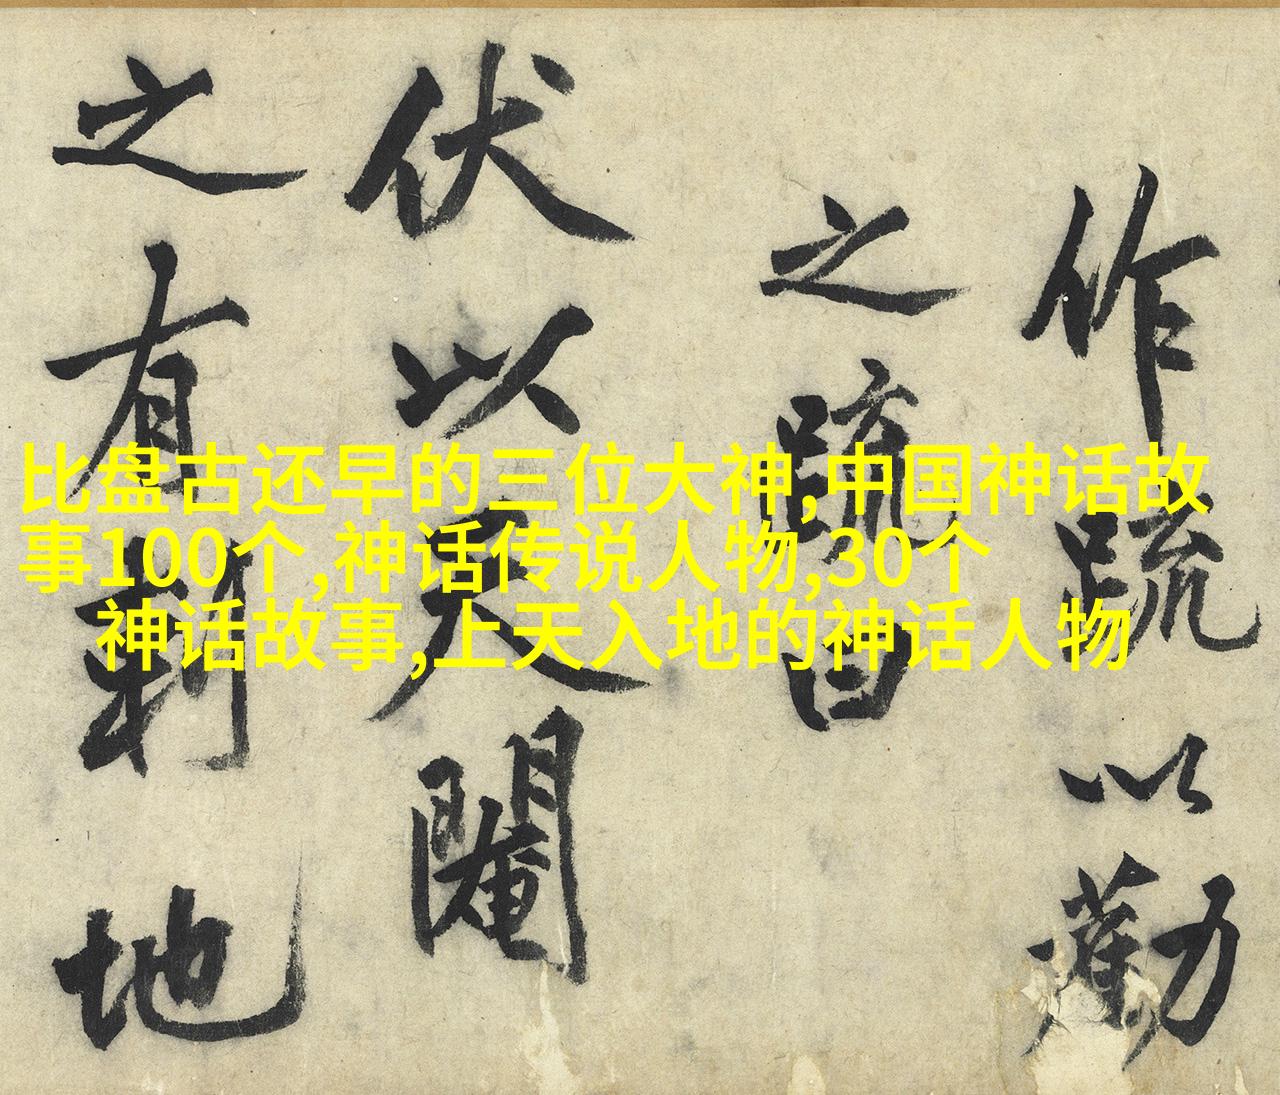 比盘古还早的三位大神,中国神话故
事100个,神话传说人物,30个
神话故事,上天入地的神话人物
作疏以勸
之疏曰
伏以閹
之有地